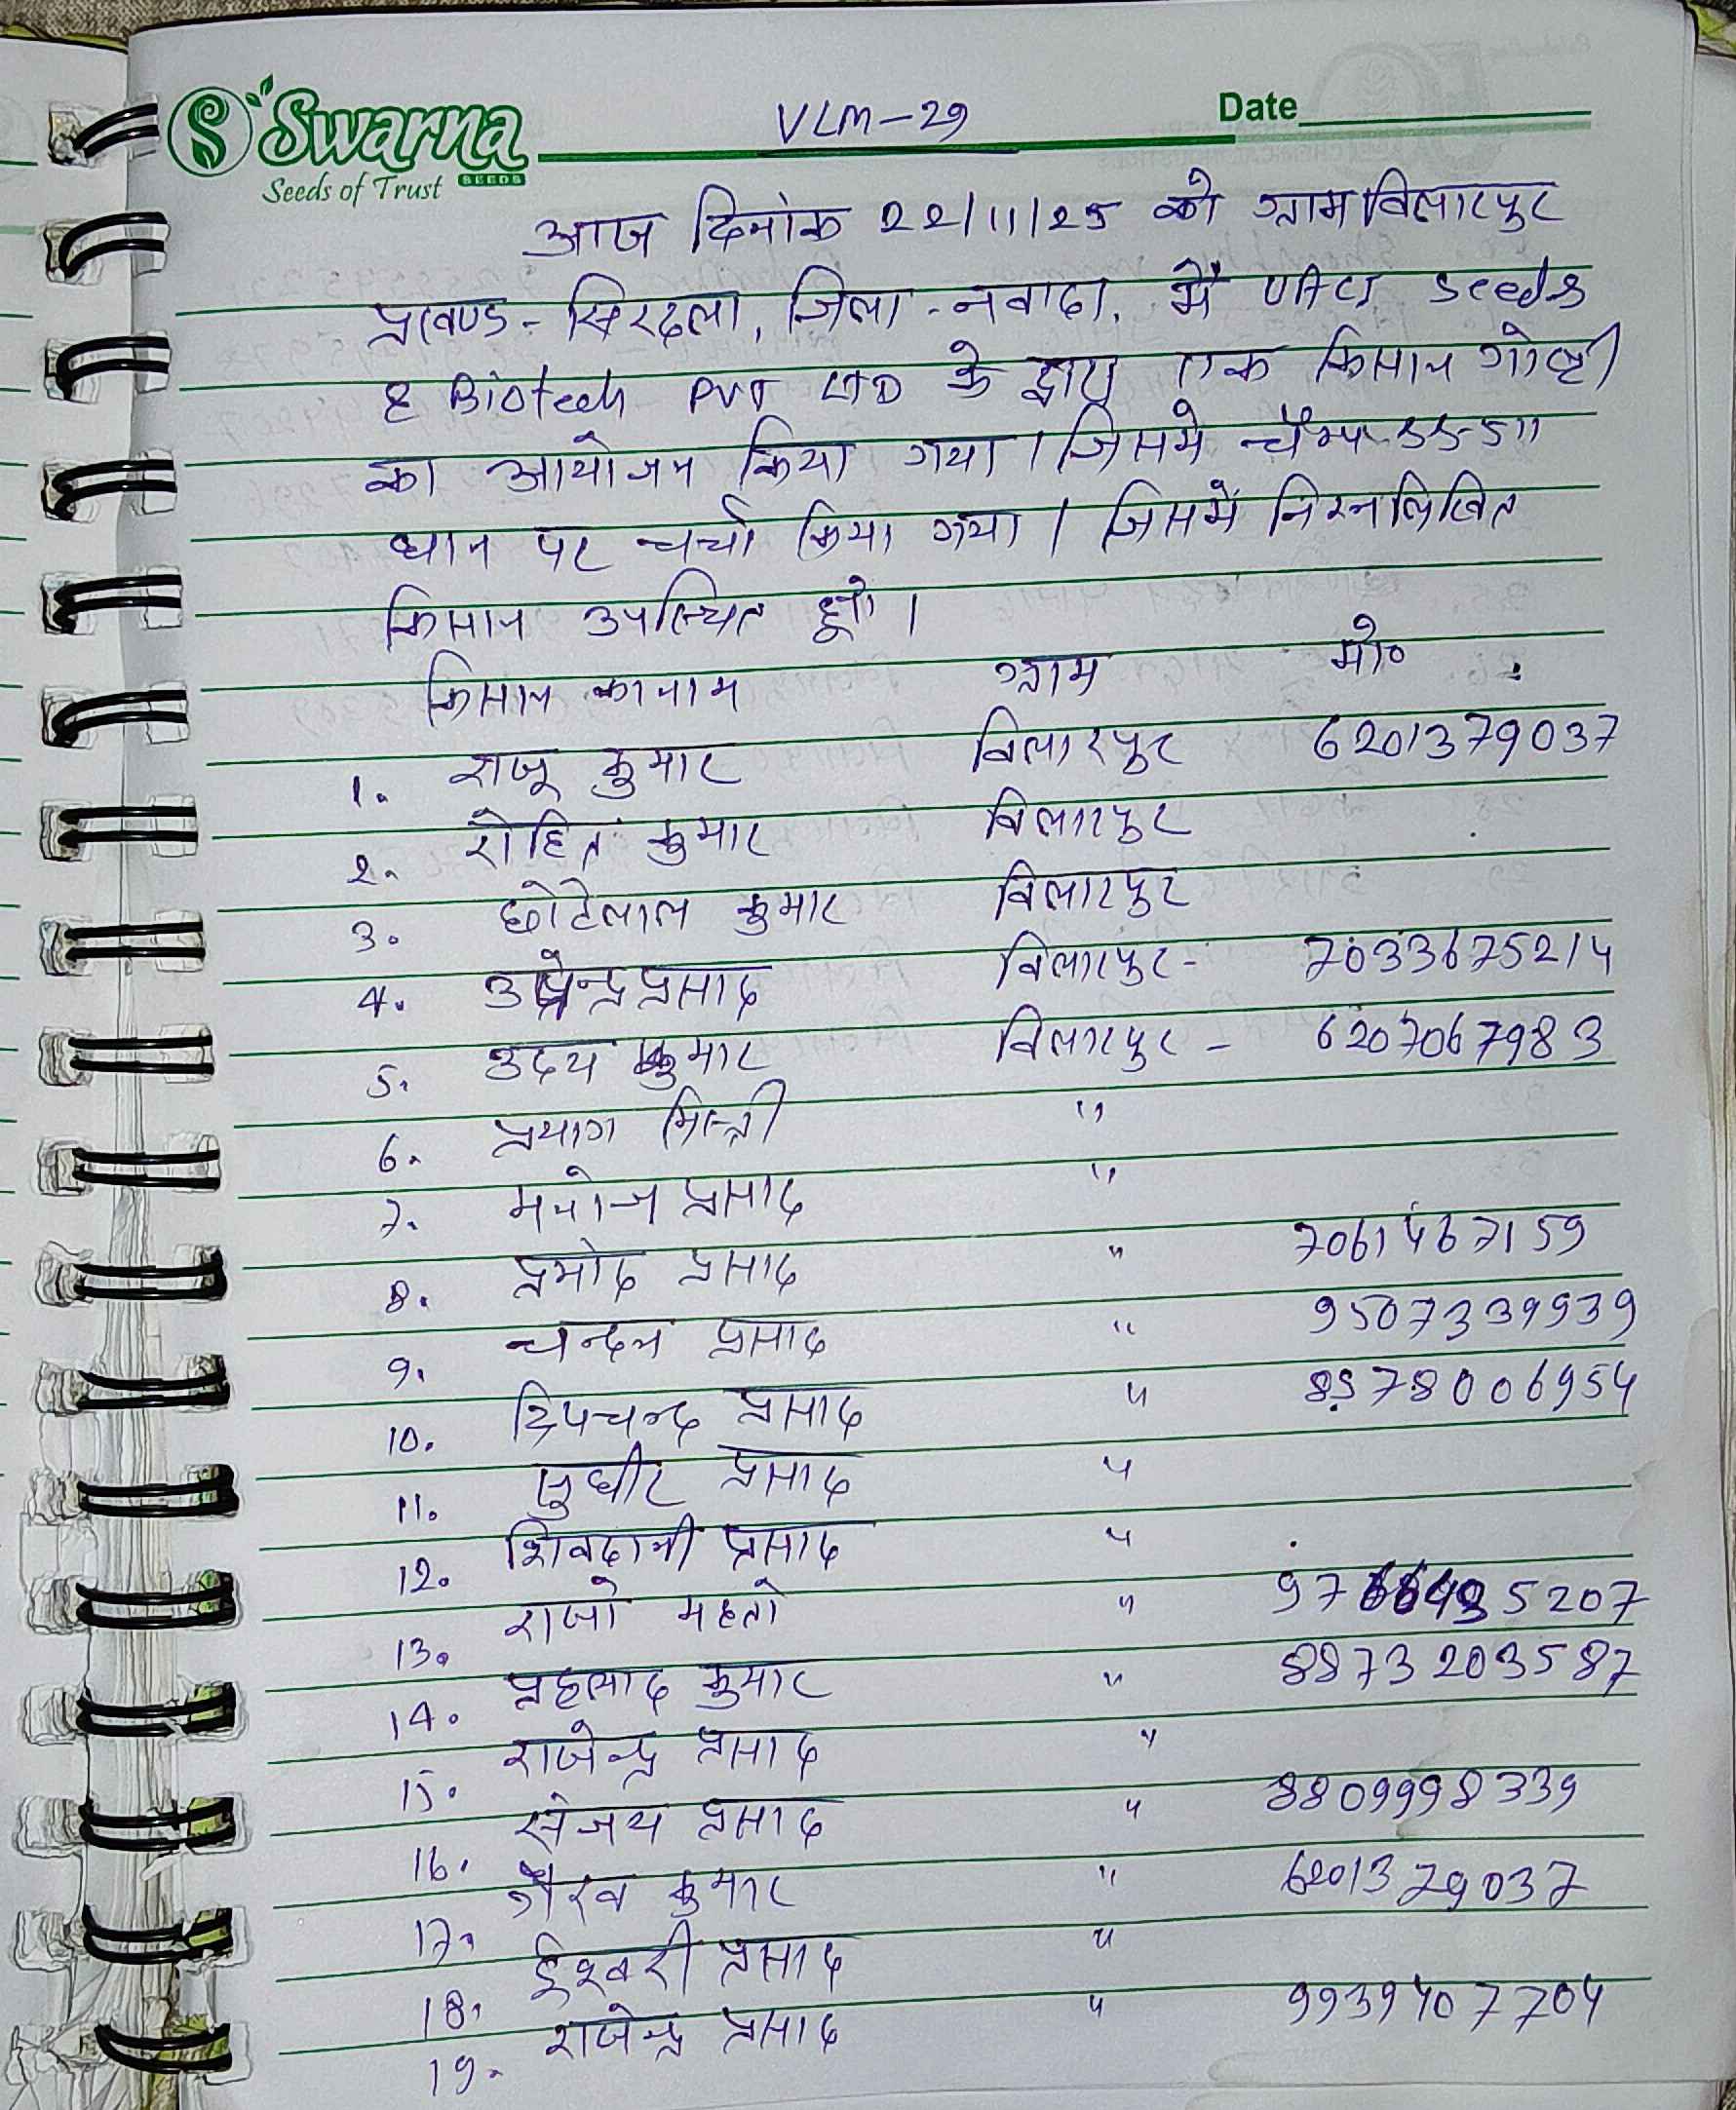 Swarna
SEEDS
Seeds of Trust
VLM-29
Date
आज दिनांक 22/11/25 को ग्राम विलारपुर
प्रखण्ड - सिरदला, जिला - नवादा, में UACI Seeds
& Biotech PVT LTD के द्वारा एक किसान गोष्ठी
का आयोजन किया गया । जिसमे चैम्प SS-511
धान पर चर्चा किया गया । जिसमें निम्नलिखित
किसान उपस्थित हुये ।
किसान का नाम ग्राम मो०
1. राजू कुमार विलारपुर 6201379037
2. रोहित कुमार विलारपुर
3. छोटेलाल कुमार विलारपुर
4. उपेन्द्र प्रसाद विलारपुर - 7033675214
5. उदय कुमार विलारपुर - 6207067983
6. प्रयाग मिस्त्री "
7. मनोज प्रसाद "
8. प्रमोद प्रसाद " 7061467159
9. चन्दन प्रसाद " 9507339939
10. दिपचन्द प्रसाद " 8578006954
11. सुधीर प्रसाद "
12. शिवदानी प्रसाद "
13. राजो महतो "
14. प्रहलाद कुमार " 88732203587
15. राजेन्द्र प्रसाद "
16. संजय प्रसाद " 8809998339
17. गौरव कुमार " 6201379037
18. ईश्वरी प्रसाद "
19. राजेन्द्र प्रसाद " 9939407704